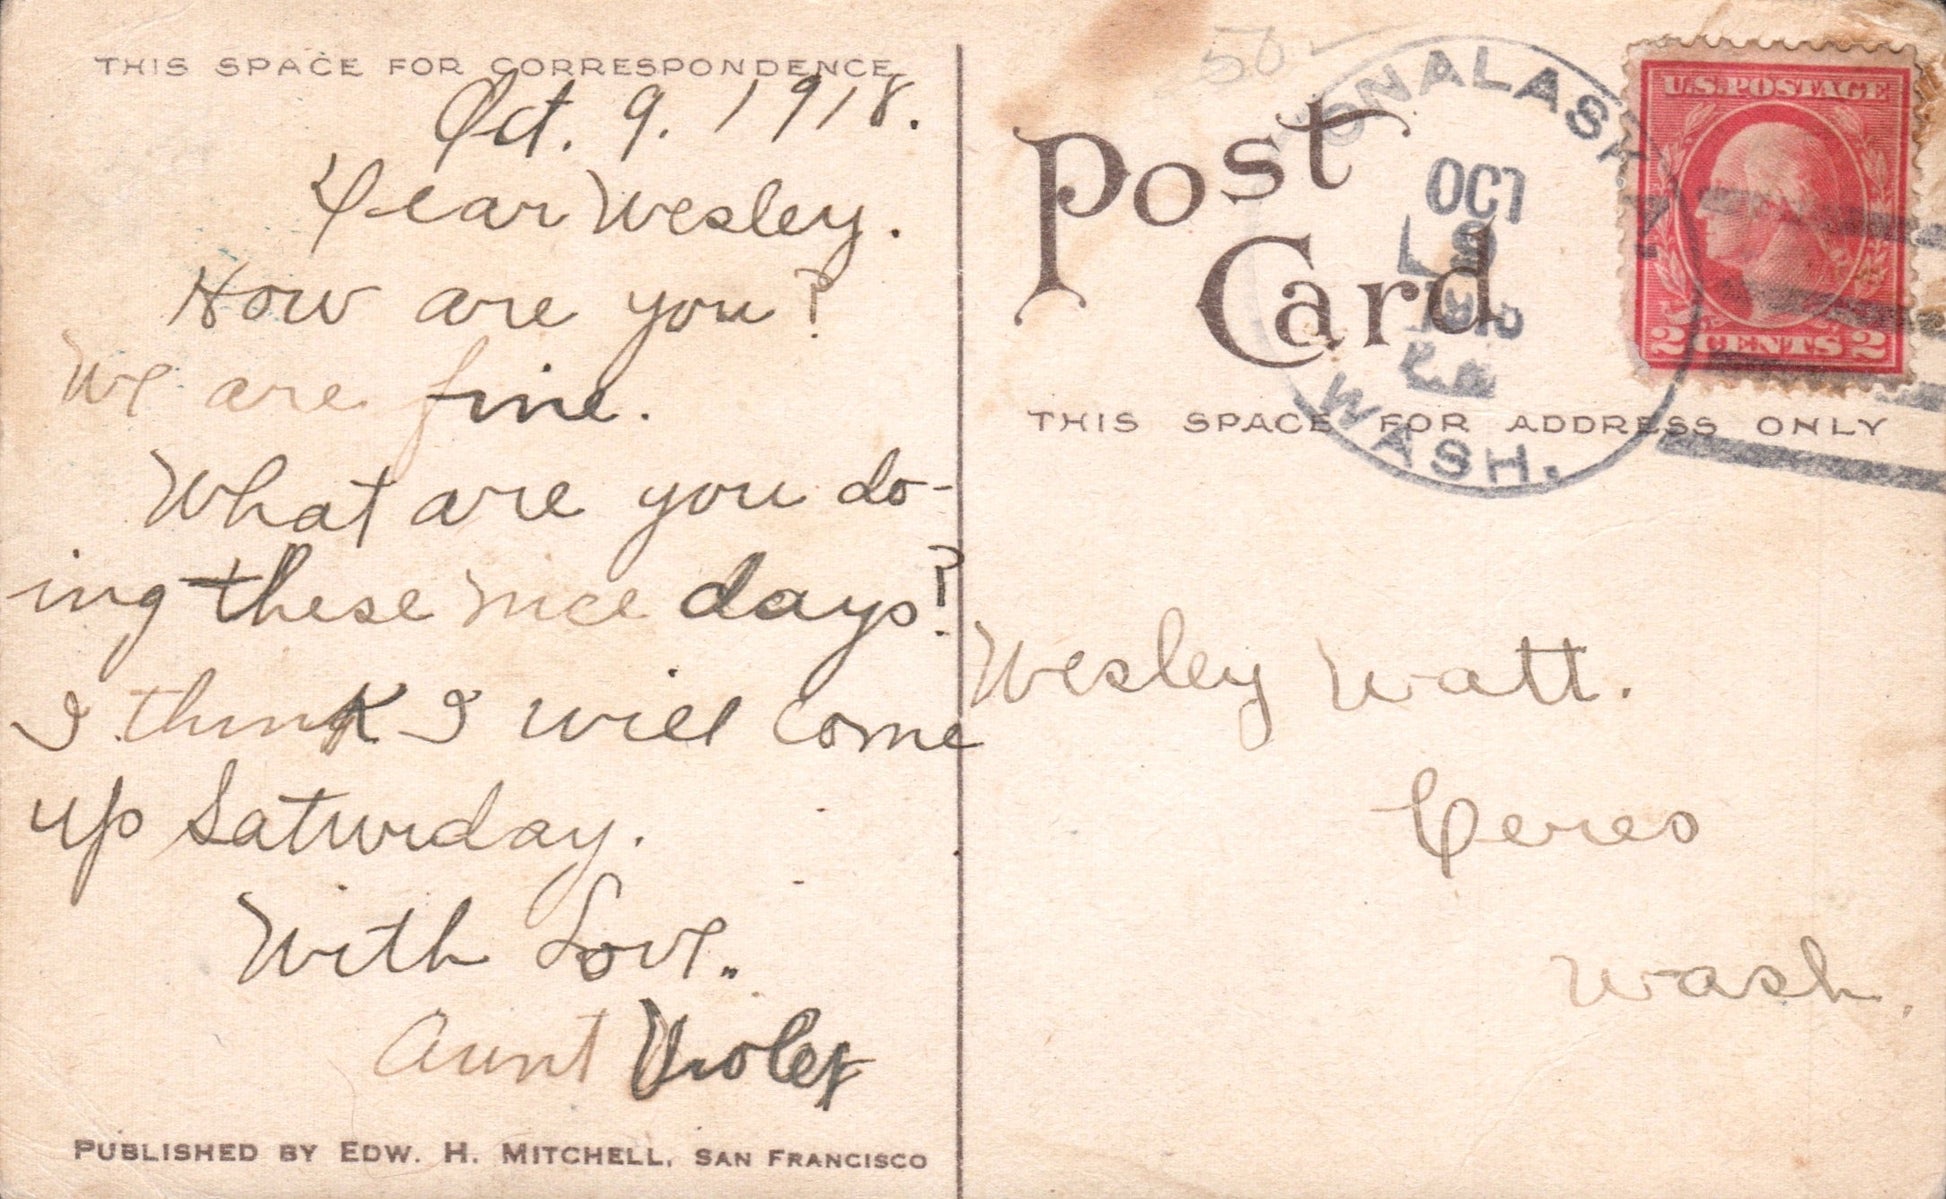 THIS SPACE FOR CORRESPONDENCE
Oct. 9. 1918.
Dear Wesley.
How are you?
We are fine.
What are you do-
ing these nice days?
I think I will come
up Saturday.
With Love.
Aunt Violet
PUBLISHED BY EDW. H. MITCHELL, SAN FRANCISCO
50
Post
Card
ONALASKA
OCT
9
WASH.
U.S. POSTAGE
2 CENTS 2
THIS SPACE FOR ADDRESS ONLY
Wesley Watt.
Ceres
Wash.